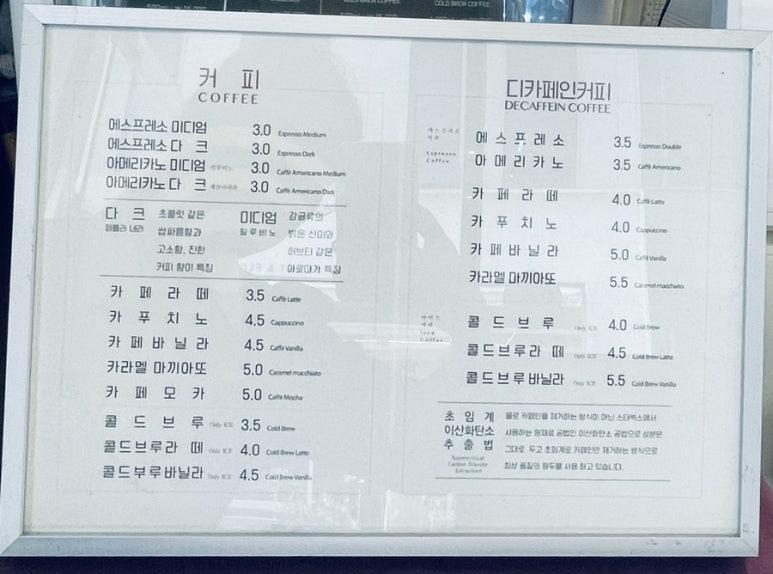 COLD BREW COFFEE
커 피
COFFEE
에스프레소 미디엄 3.0 Espresso Medium
에스프레소 다 크 3.0 Espresso Dark
아메리카노 미디엄 3.0 Caffè Americano Medium
아메리카노 다 크 3.0 Caffè Americano Dark
다 크 초콜릿 같은
페를라 네라 쌉싸름함과
고소함, 진한
커피 향이 특징
미디엄 감귤류의
일 루 비 노 밝은 산미와
허브티 같은
아로마가 특징
카 페 라 떼 3.5 Caffè Latte
카 푸 치 노 4.5 Cappuccino
카 페 바 닐 라 4.5 Caffè Vanilla
카라멜 마끼아또 5.0 Caramel macchiato
카 페 모 카 5.0 Caffè Mocha
콜 드 브 루 Only ICE 3.5 Cold Brew
콜드브루라 떼 Only ICE 4.0 Cold Brew Latte
콜드부루바닐라 Only ICE 4.5 Cold Brew Vanilla
디카페인커피
DECAFFEIN COFFEE
에스프레소
커피
Espresso
Coffee
에 스 프 레 소 3.5 Espresso Double
아 메 리 카 노 3.5 Caffè Americano
카 페 라 떼 4.0 Caffè Latte
카 푸 치 노 4.0 Cappuccino
카 페 바 닐 라 5.0 Caffè Vanilla
카라멜 마끼아또 5.5 Caramel macchiato
아이스
커피
Iced
Coffee
콜 드 브 루 Only ICE 4.0 Cold Brew
콜드브루라 떼 Only ICE 4.5 Cold Brew Latte
콜드브루바닐라 Only ICE 5.5 Cold Brew Vanilla
초 임 계
이산화탄소
추 출 법
Supercritical
Carbon Dioxide
Extraction
물로 카페인을 제거하는 방식이 아닌 스타벅스에서
사용하는 원재료 공법인 이산화탄소 공법으로 성분은
그대로 두고 초임계로 카페인만 제거하는 방식으로
최상 품질의 원두를 사용 하고 있습니다.